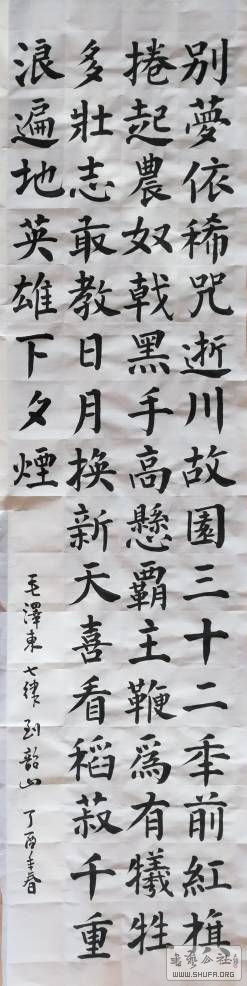 别夢依稀咒逝川故園三十二年前紅旗
捲起農奴戟黑手高懸霸主鞭為有犧牲
多壯志敢教日月換新天喜看稻菽千重
浪遍地英雄下夕煙
毛澤東七律到韶山 丁酉年春
書藝公社
WWW.SHUFA.ORG